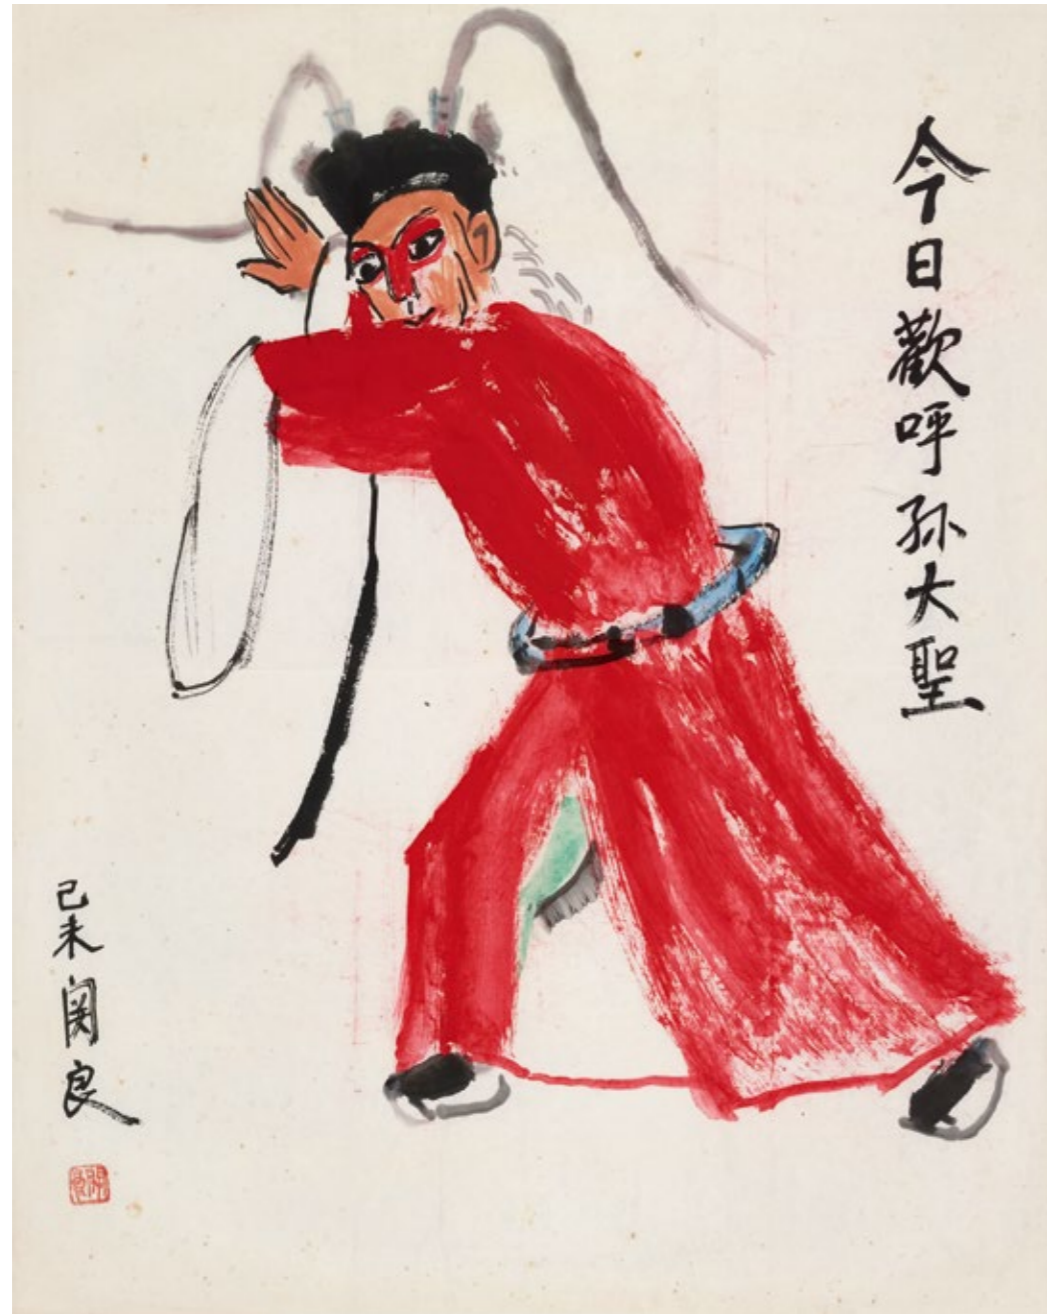 今日歡呼孫大聖
己未
関良